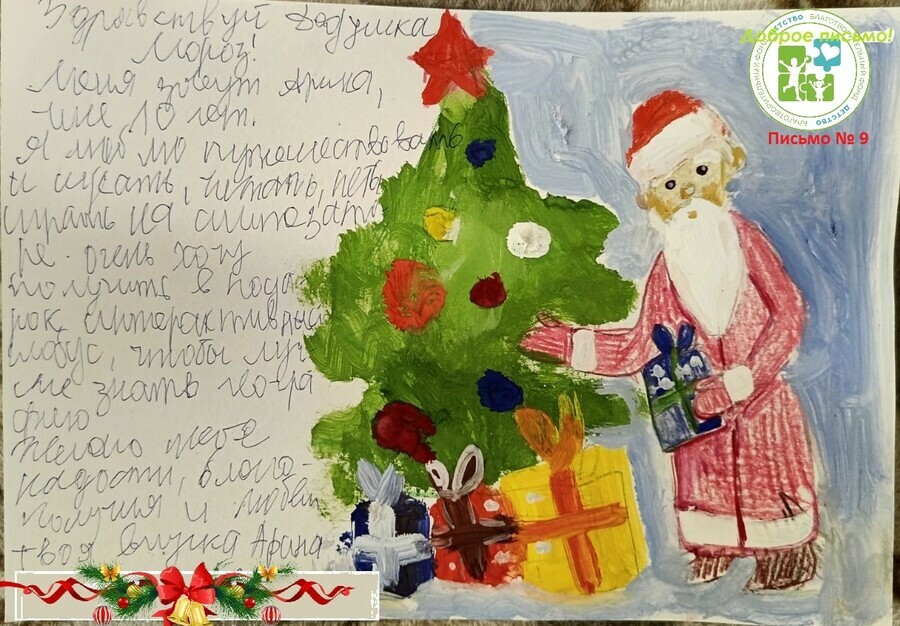 Здравствуй Дедушка
Мороз!
Меня зовут Арина,
мне 10 лет.
Я люблю путешествовать
и
читать, петь
играть на синтезато
ре. очень хочу
получить в пода-
рок интерактивный
глобус, чтобы луч
ше знать геогра
фию
Желаю тебе
радости, благо-
получия и любви
твоя внучка Арина
Доброе письмо!
БЛАГОТВОРИТЕЛЬНЫЙ ФОНД ДЕТСТВО
Письмо № 9